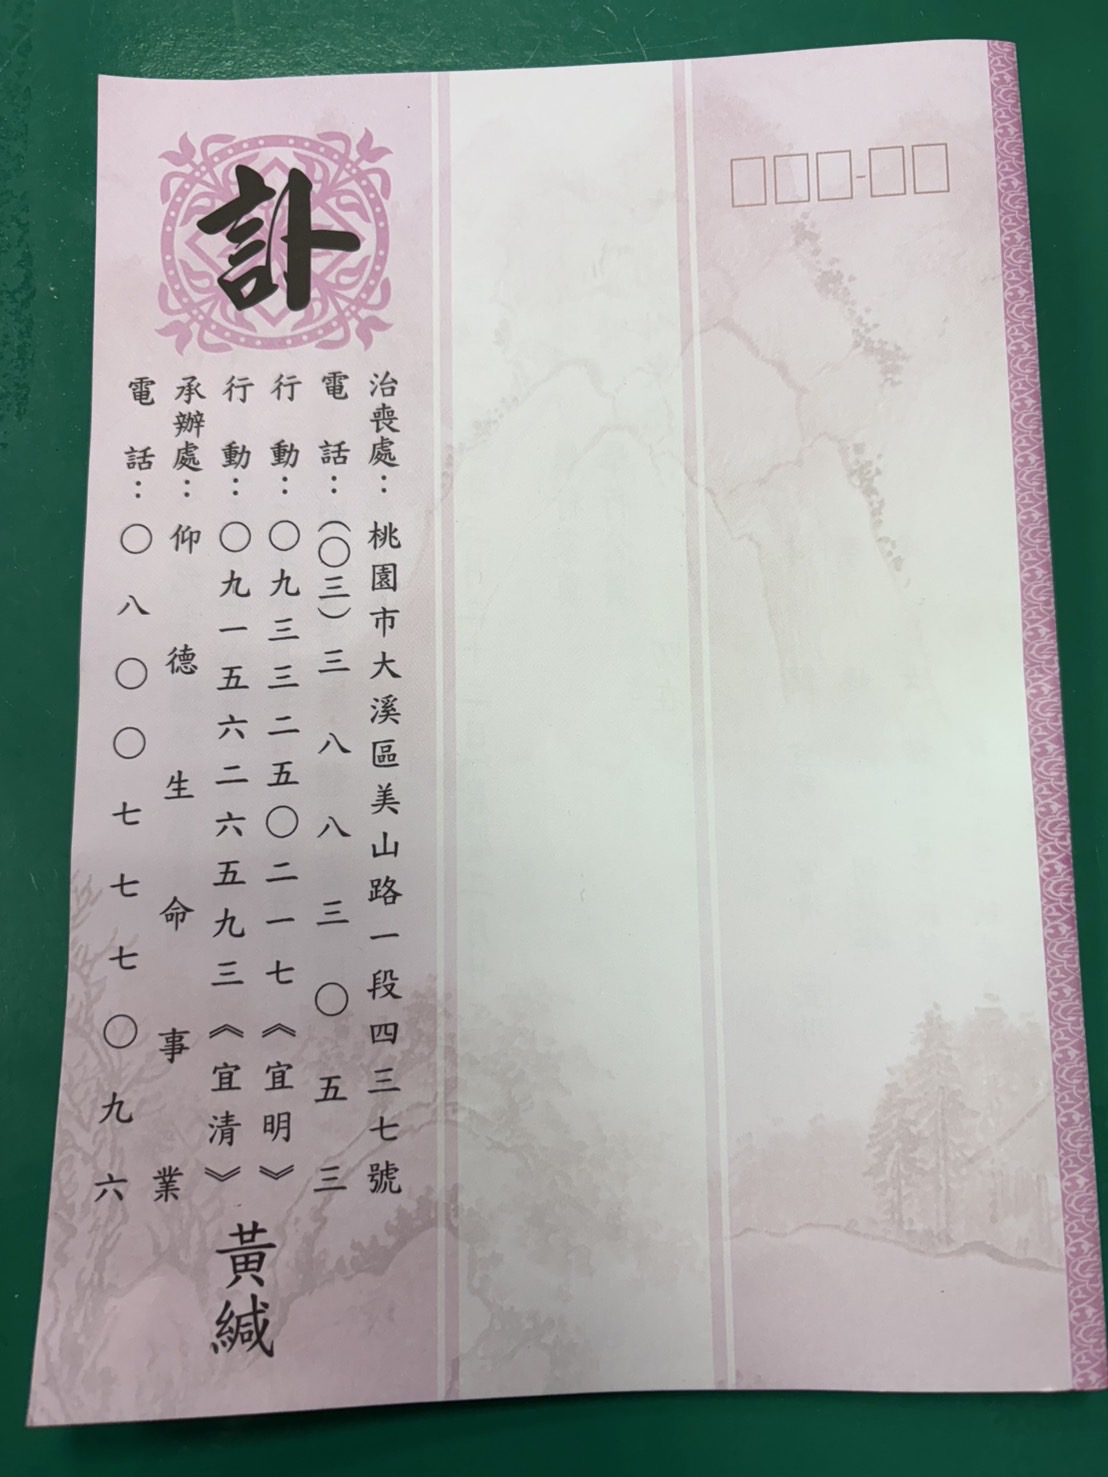 治喪處：桃園市大溪區美山路一段四三七號
電話：（〇三）三八八三〇五三
行動：〇九三三二五〇二一七《宜明》
行動：〇九一五六二六五九三《宜清》
承辦處：仰德生命事業
電話：〇八〇〇七七七〇九六
訃
黃緘